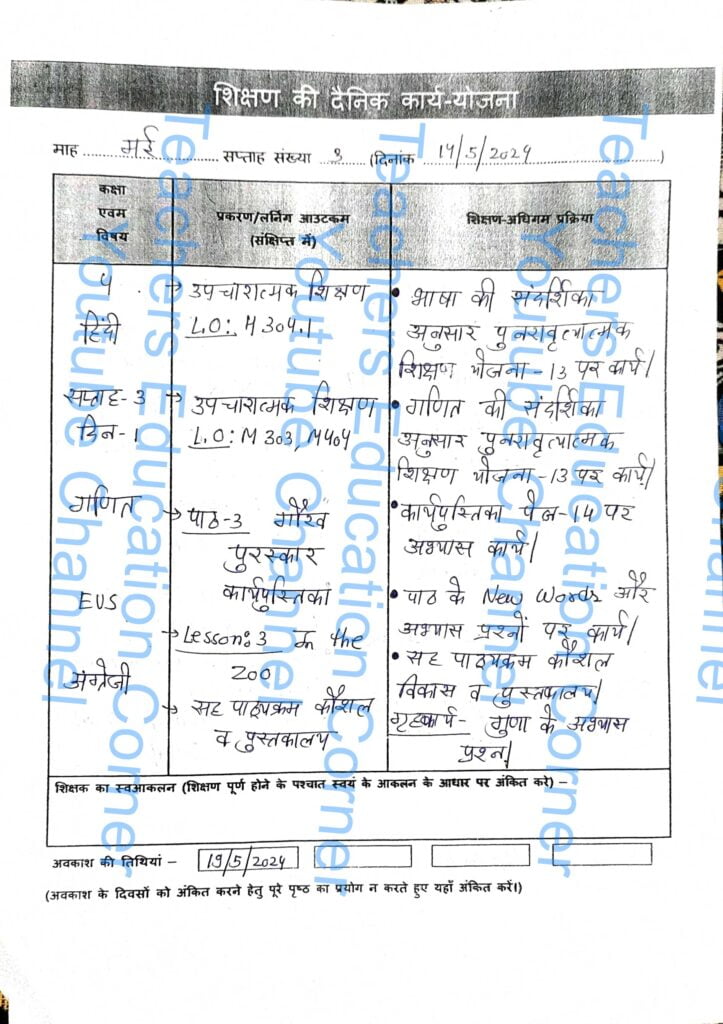 शिक्षण की दैनिक कार्य-योजना
माह मई सप्ताह संख्या 3 (दिनांक 14/5/2024)
कक्षा एवम विषय
प्रकरण/लर्निंग आउटकम (संक्षिप्त में)
शिक्षण-अधिगम प्रक्रिया
हिंदी
→ उपचारात्मक शिक्षण
L.O: H 304.1
• भाषा की संदर्शिका
अनुसार पुनरावृत्यात्मक
शिक्षण योजना-13 पर कार्य।
सप्ताह-3
दिन-1
गणित
→ उपचारात्मक शिक्षण
L.O: M 303, M404
• गणित की संदर्शिका
अनुसार पुनरावृत्यात्मक
शिक्षण योजना-13 पर कार्य।
EVS
→ पाठ-3 गौरव
पुरस्कार
कार्यपुस्तिका
• कार्यपुस्तिका पेज-14 पर
अभ्यास कार्य।
अंग्रेजी
→ Lesson:3 In the
Zoo
• पाठ के New Words और
अभ्यास प्रश्नों पर कार्य।
→ सह पाठ्यक्रम कौशल
व पुस्तकालय
• सह पाठ्यक्रम कौशल
विकास व पुस्तकालय।
गृहकार्य- गुणा के अभ्यास
प्रश्न।
शिक्षक का स्वआकलन (शिक्षण पूर्ण होने के पश्चात स्वयं के आकलन के आधार पर अंकित करे) –
अवकाश की तिथियां – 19/5/2024
(अवकाश के दिवसों को अंकित करने हेतु पूरे पृष्ठ का प्रयोग न करते हुए यहाँ अंकित करें।)
Teachers Education Corner
Youtube Channel
Teachers Education Corner
Youtube Channel
Teachers Education Corner
Youtube Channel